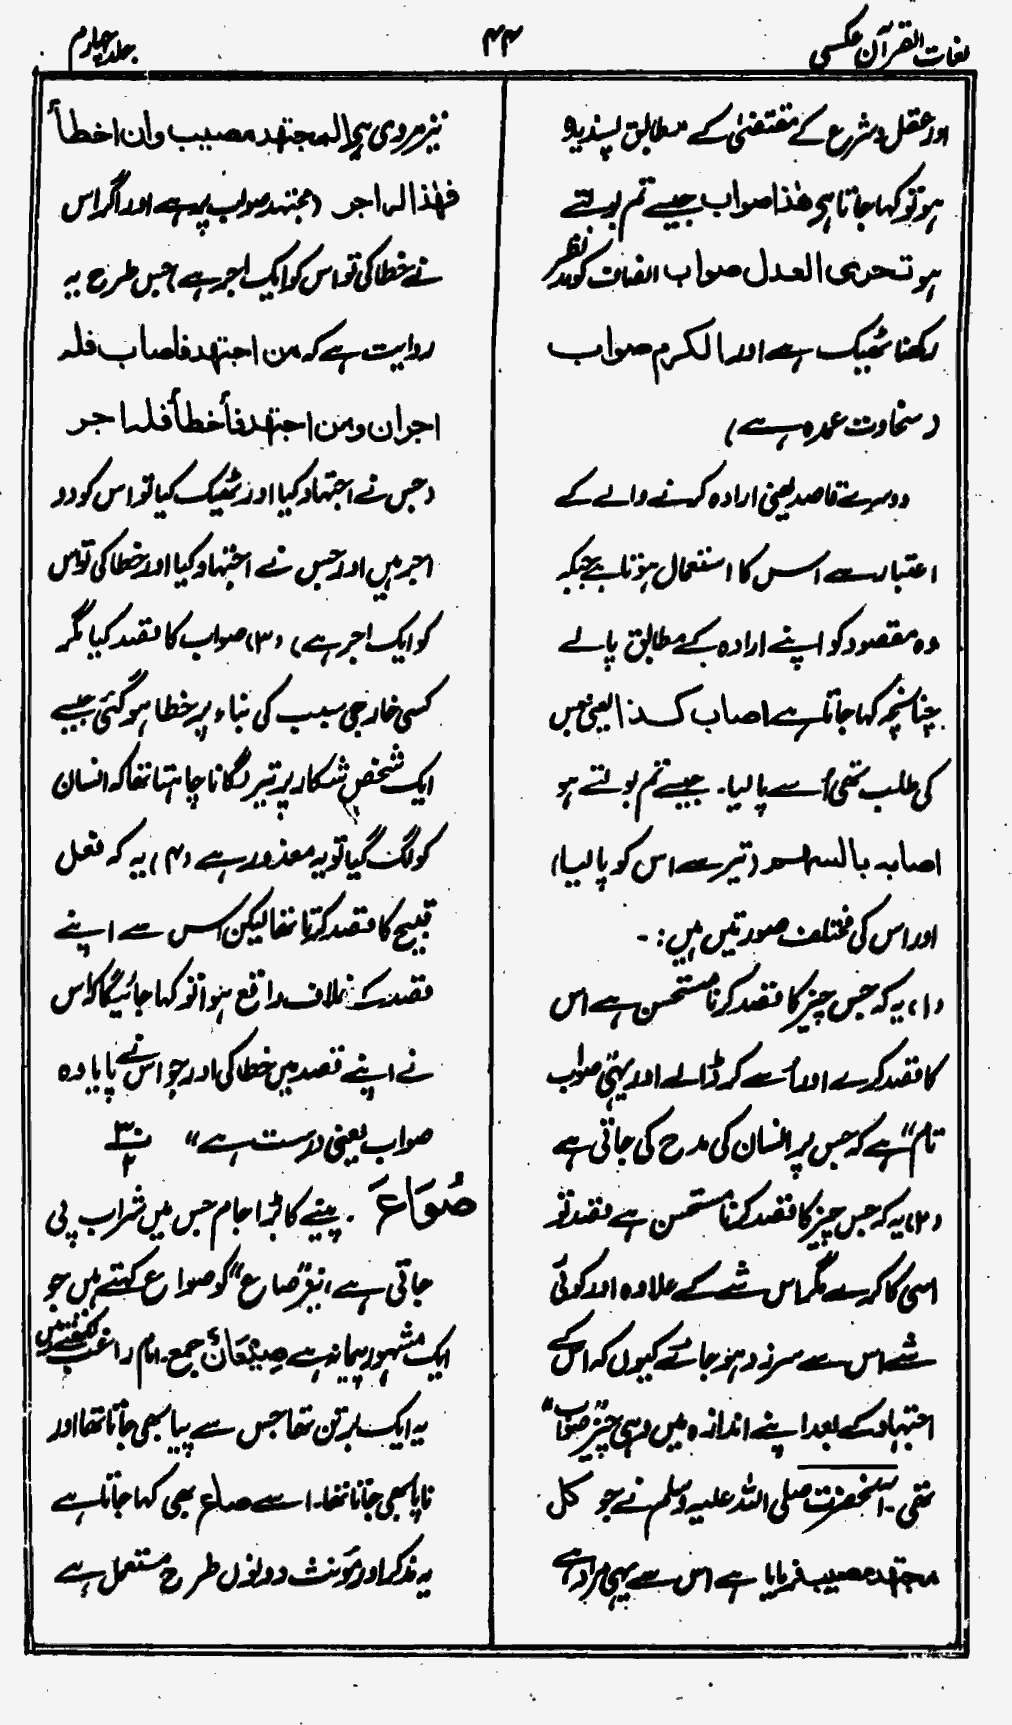 لغات القرآن عکسی
۴۴
جلد چہارم
اور عقل و شرع کے مقتضیٰ کے مطابق پسندیدہ
ہو تو کہا جاتا ہی ھٰذا صواب جیسے تم بولتے
ہو تحری العدل صواب انصاف کو مدنظر
رکھنا ٹھیک ہے اور الکرم صواب
(سخاوت عمدہ ہے)
دوسرے قاصد یعنی ارادہ کرنے والے کے
اعتبار سے اس کا استعمال ہوتا ہے جبکہ
وہ مقصود کو اپنے ارادہ کے مطابق پالے
چنانچہ کہا جاتا ہے اصاب کذا یعنی جس
کی طلب تھی اُسے پا لیا۔ جیسے تم بولتے ہو
اصابہ بالسھم (تیر سے اس کو پا لیا)
اور اس کی مختلف صورتیں ہیں :-
(۱) یہ کہ جس چیز کا قصد کرنا مستحسن ہے اس
کا قصد کرے اور اُسے کر ڈالے اور یہی صواب
تام" ہے کہ جس پر انسان کی مدح کی جاتی ہے
(۲) یہ کہ جس چیز کا قصد کرنا مستحسن ہے قصد تو
اسی کا کرے مگر اس شے کے علاوہ اور کوئی
شے اس سے سرزد ہو جائے کیوں کہ اس کے
اجتہاد کے بعد اپنے اندازہ میں وہی چیز "صواب"
تھی۔ آنحضرت صلی اللہ علیہ وسلم نے جو کل
مجتھد مصیب فرمایا ہے اس سے یہی مراد ہے
نیز مروی ہی المجتھد مصیب وان اخطأ
فھٰذا لہ اجر (مجتہد صواب پر ہے اور اگر اس
نے خطا کی تو اس کو ایک اجر ہے) جس طرح یہ
روایت ہے کہ من اجتھد فاصاب فلہ
اجران ومن اجتھد فأخطأ فلہ اجر
(جس نے اجتہاد کیا اور ٹھیک کیا تو اس کو دو
اجر ہیں اور جس نے اجتہاد کیا اور خطا کی تو اس
کو ایک اجر ہے) (۳) صواب کا قصد کیا مگر
کسی خارجی سبب کی بناء پر خطا ہو گئی جیسے
ایک شخص شکار پر تیر لگانا چاہتا تھا کہ انسان
کو لگ گیا تو یہ معذور ہے (۴) یہ کہ فعل
قبیح کا قصد کرتا تھا لیکن اس سے اپنے
قصد کے خلاف واقع ہوا تو کہا جائیگا کہ اس
نے اپنے قصد میں خطا کی اور جو اس نے پایا وہ
صواب یعنی درست ہے" ۳۰/۲
صُوَاعَ . پینے کا بڑا جام جس میں شراب پی
جاتی ہے، نیز "صاع" کو صواع کہتے ہیں جو
ایک مشہور پیمانہ ہے صِیْعَانٌ جمع۔ امام راغب لکھتے ہیں
یہ ایک برتن تھا جس سے پیا بھی جاتا تھا اور
ناپا بھی جاتا تھا۔ اسے صاع بھی کہا جاتا ہے
یہ مذکر اور مؤنث دونوں طرح مستعمل ہے